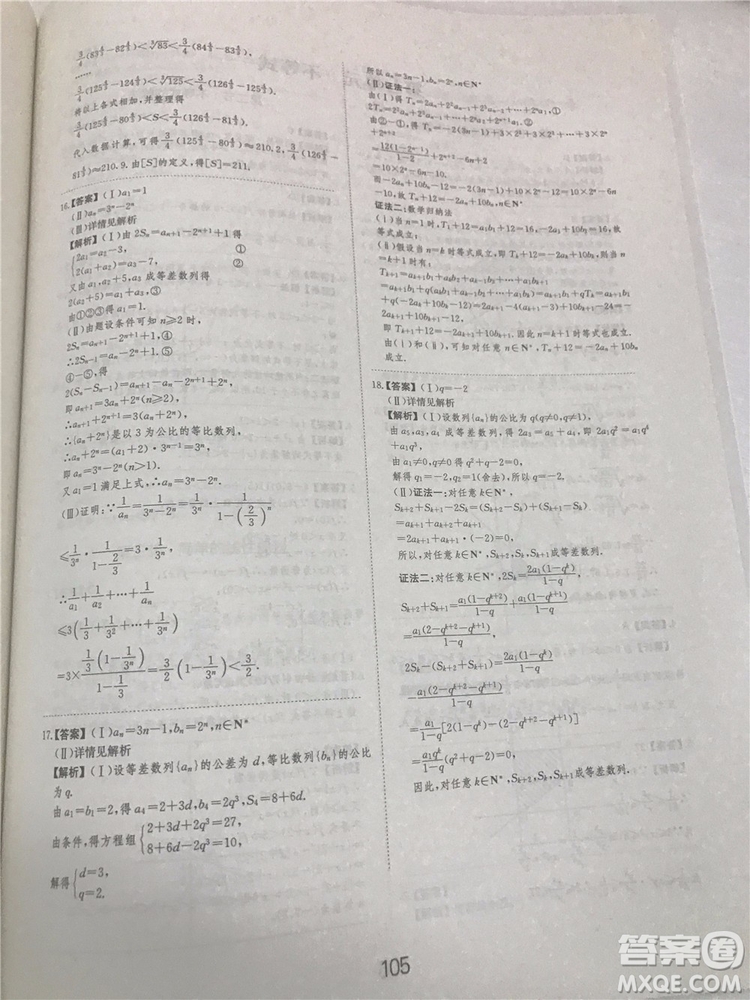 3/4(83^{4/3}-82^{4/3})<∛83<3/4(84^{4/3}-83^{4/3}).
……
3/4(125^{4/3}-124^{4/3})<∛125<3/4(126^{4/3}-125^{4/3}).
将以上各式相加,并整理得
3/4(125^{4/3}-80^{4/3})<S<3/4(126^{4/3}-81^{4/3}).
代入数据计算,可得3/4(125^{4/3}-80^{4/3})≈210.2,3/4(126^{4/3}-
81^{4/3})≈210.9.由[S]的定义,得[S]=211.
16.【答案】(Ⅰ)a₁=1
(Ⅱ)aₙ=3ⁿ-2ⁿ
(Ⅲ)详情见解析
【解析】(Ⅰ)由2Sₙ=aₙ₊₁-2ⁿ⁺¹+1得
{2a₁=a₂-3, ①
2(a₁+a₂)=a₃-7, ②
又由a₁,a₂+5,a₃成等差数列得
2(a₂+5)=a₁+a₃,③
由①②③得a₁=1.
(Ⅱ)由题设条件可知n≥2时,
2Sₙ=aₙ₊₁-2ⁿ⁺¹+1 ④
2Sₙ₋₁=aₙ-2ⁿ+1 ⑤
④-⑤得:
2(Sₙ-Sₙ₋₁)=aₙ₊₁-aₙ-2ⁿ⁺¹+2ⁿ,
即aₙ₊₁=3aₙ+2ⁿ(n≥2).
∴aₙ₊₁+2ⁿ⁺¹=3(aₙ+2ⁿ)
∴{aₙ+2ⁿ}是以3为公比的等比数列.
∴aₙ+2ⁿ=(a₁+2)·3ⁿ⁻¹=3ⁿ
即aₙ=3ⁿ-2ⁿ(n>1).
又a₁=1满足上式,∴aₙ=3ⁿ-2ⁿ.
(Ⅲ)证明:∵1/aₙ=1/(3ⁿ-2ⁿ)=1/3ⁿ·1/(1-(2/3)ⁿ)
≤1/3ⁿ·1/(1-2/3)=3·1/3ⁿ,
∴1/a₁+1/a₂+…+1/aₙ
≤3(1/3+1/3²+…+1/3ⁿ)
=3×(1/3(1-1/3ⁿ))/(1-1/3)=3/2(1-1/3ⁿ)<3/2.
17.【答案】(Ⅰ)aₙ=3n-1,bₙ=2ⁿ,n∈N*
(Ⅱ)详情见解析
【解析】(Ⅰ)设等差数列{aₙ}的公差为d,等比数列{bₙ}的公比
为q.
由a₁=b₁=2,得a₄=2+3d,b₄=2q³,S₄=8+6d.
由条件,得方程组{2+3d+2q³=27,
8+6d-2q³=10,
解得{d=3,
q=2.
所以aₙ=3n-1,bₙ=2ⁿ,n∈N*
(Ⅱ)证法一:
由(Ⅰ)得Tₙ=2aₙ+2²aₙ₋₁+2³aₙ₋₂+…+2ⁿa₁,①
2Tₙ=2²aₙ+2³aₙ₋₁+…+2ⁿa₂+2ⁿ⁺¹a₁.②
由②-①,得Tₙ=-2(3n-1)+3×2²+3×2³+…+3×2ⁿ
+2ⁿ⁺²
=12(1-2ⁿ⁻¹)/(1-2)+2ⁿ⁺²-6n+2
=10×2ⁿ-6n-10.
而-2aₙ+10bₙ-12=-2(3n-1)+10×2ⁿ-12=10×2ⁿ-6n-10.
故Tₙ+12=-2aₙ+10bₙ,n∈N*.
证法二:数学归纳法
(ⅰ)当n=1时,T₁+12=a₁b₁+12=16,-2a₁+10b₁=16,故
等式成立;
(ⅱ)假设当n=k时等式成立,即Tₖ+12=-2aₖ+10bₖ,则当n=
k+1时有:
Tₖ₊₁=aₖ₊₁b₁+aₖb₂+aₖ₋₁b₃+…+a₁bₖ₊₁
=aₖ₊₁b₁+q(aₖb₁+aₖ₋₁b₂+…+a₁bₖ)=aₖ₊₁b₁+qTₖ=aₖ₊₁b₁
+q(-2aₖ+10bₖ-12)=2aₖ₊₁-4(aₖ₊₁-3)+10bₖ₊₁-24
=-2aₖ₊₁+10bₖ₊₁-12.
即Tₖ₊₁+12=-2aₖ₊₁+10bₖ₊₁.因此n=k+1时等式也成立.
由(ⅰ)和(ⅱ),可知对任意n∈N*,Tₙ+12=-2aₙ+10bₙ
成立.
18.【答案】(Ⅰ)q=-2
(Ⅱ)详情见解析
【解析】(Ⅰ)设数列{aₙ}的公比为q(q≠0,q≠1),
由a₅,a₃,a₄成等差数列,得2a₃=a₅+a₄,即2a₁q²=a₁q⁴
+a₁q³.
由a₁≠0,q≠0得q²+q-2=0,
解得q=-2,q=1(舍去),所以q=-2.
(Ⅱ)证法一:对任意k∈N*,
Sₖ₊₂+Sₖ₊₁-2Sₖ=(Sₖ₊₂-Sₖ)+(Sₖ₊₁-Sₖ)
=aₖ₊₁+aₖ₊₂+aₖ₊₁
=2aₖ₊₁+aₖ₊₁·(-2)=0,
所以,对任意k∈N*,Sₖ₊₂,Sₖ,Sₖ₊₁成等差数列.
证法二:对任意k∈N*,2Sₖ=2a₁(1-qᵏ)/(1-q),
Sₖ₊₂+Sₖ₊₁=a₁(1-qᵏ⁺²)/(1-q)+a₁(1-qᵏ⁺¹)/(1-q)
=a₁(2-qᵏ⁺²-qᵏ⁺¹)/(1-q),
2Sₖ-(Sₖ₊₂+Sₖ₊₁)=2a₁(1-qᵏ)/(1-q)
-a₁(2-qᵏ⁺²-qᵏ⁺¹)/(1-q)
=a₁/(1-q)[2(1-qᵏ)-(2-qᵏ⁺²-qᵏ⁺¹)]
=a₁qᵏ/(1-q)(q²+q-2)=0,
因此,对任意k∈N*,Sₖ₊₂,Sₖ,Sₖ₊₁成等差数列.
105
答案圈
MXQE.COM